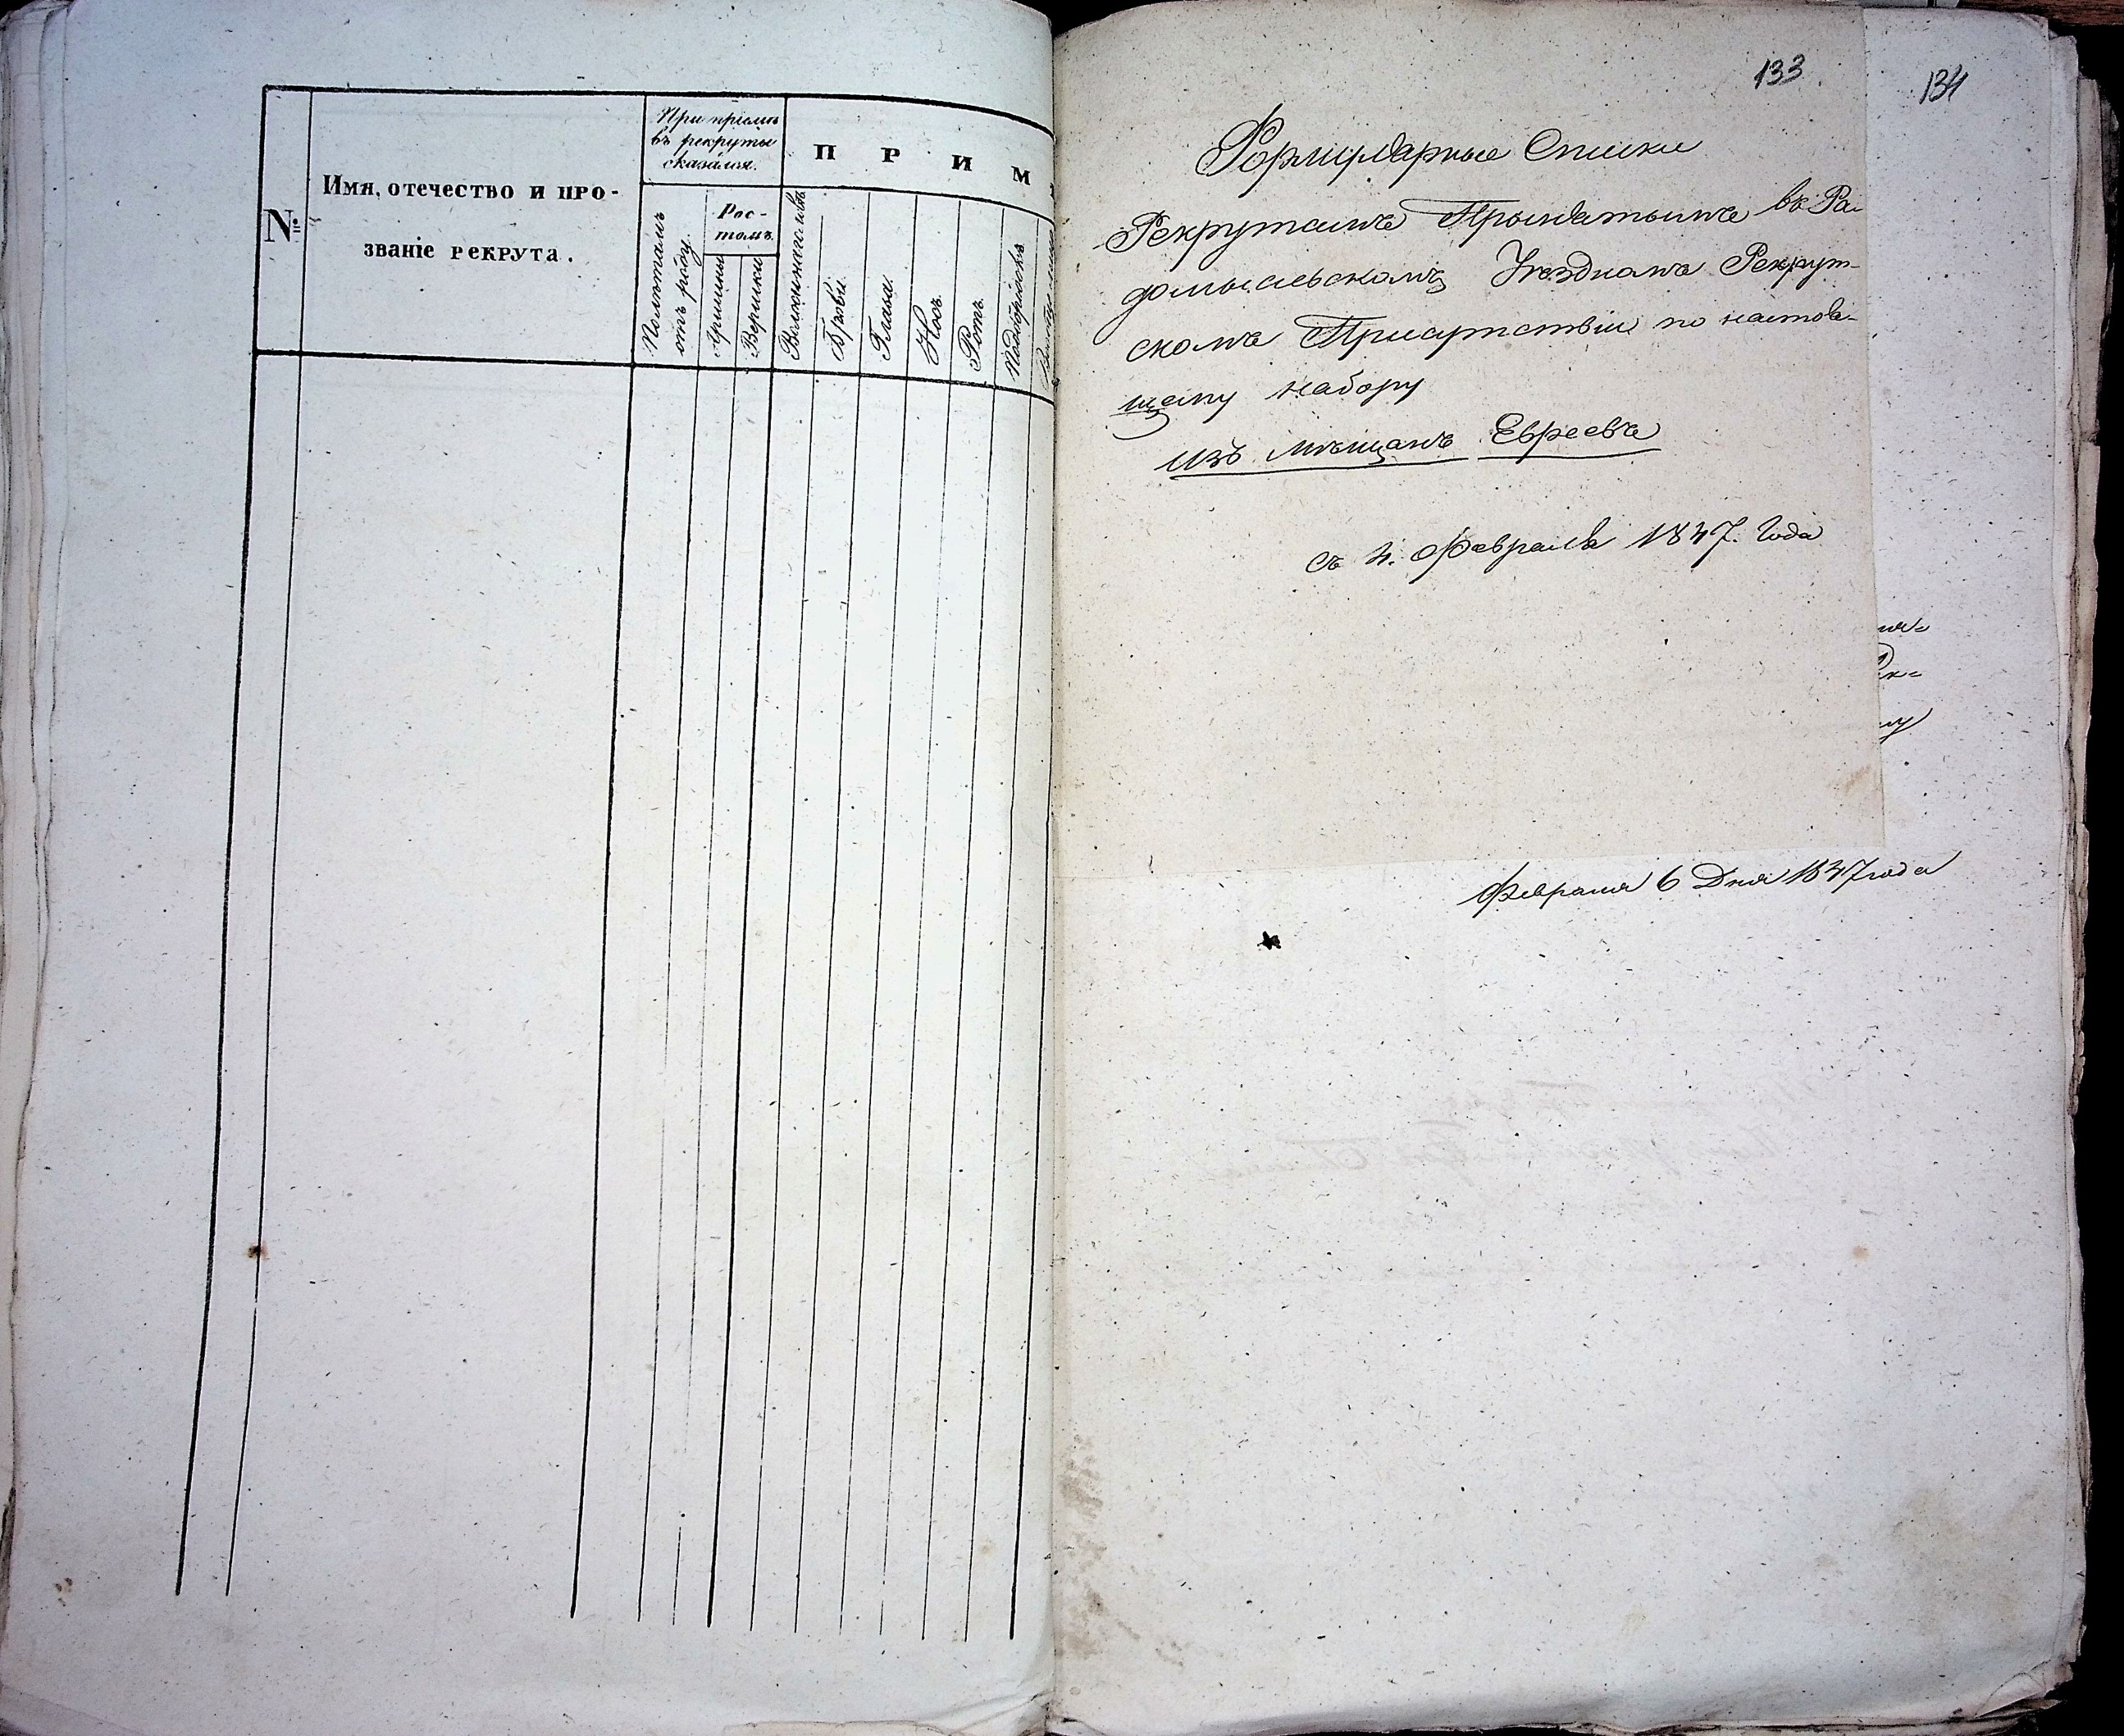 №
Имя, отечество и про-
званіе рекрута.
При пріемѣ
въ рекруты
сказался.
Полѣтамъ
отъ роду.
Рос-
томъ.
Аршины
Вершки
П Р И М
Волосы на головѣ
Брови
Глаза
Носъ
Ротъ
Подбородокъ
133
134
Формулярные Списки
Рекрутамъ Принятымъ въ Ра-
домысльскомъ Уездномъ Рекрут-
скомъ Присутствіи по настоя-
щему набору
изъ мѣщанъ Евреевъ
съ 4. Февраля 1847. Года
ня-
Рек-
му
Февраля 6 Дня 1847 года